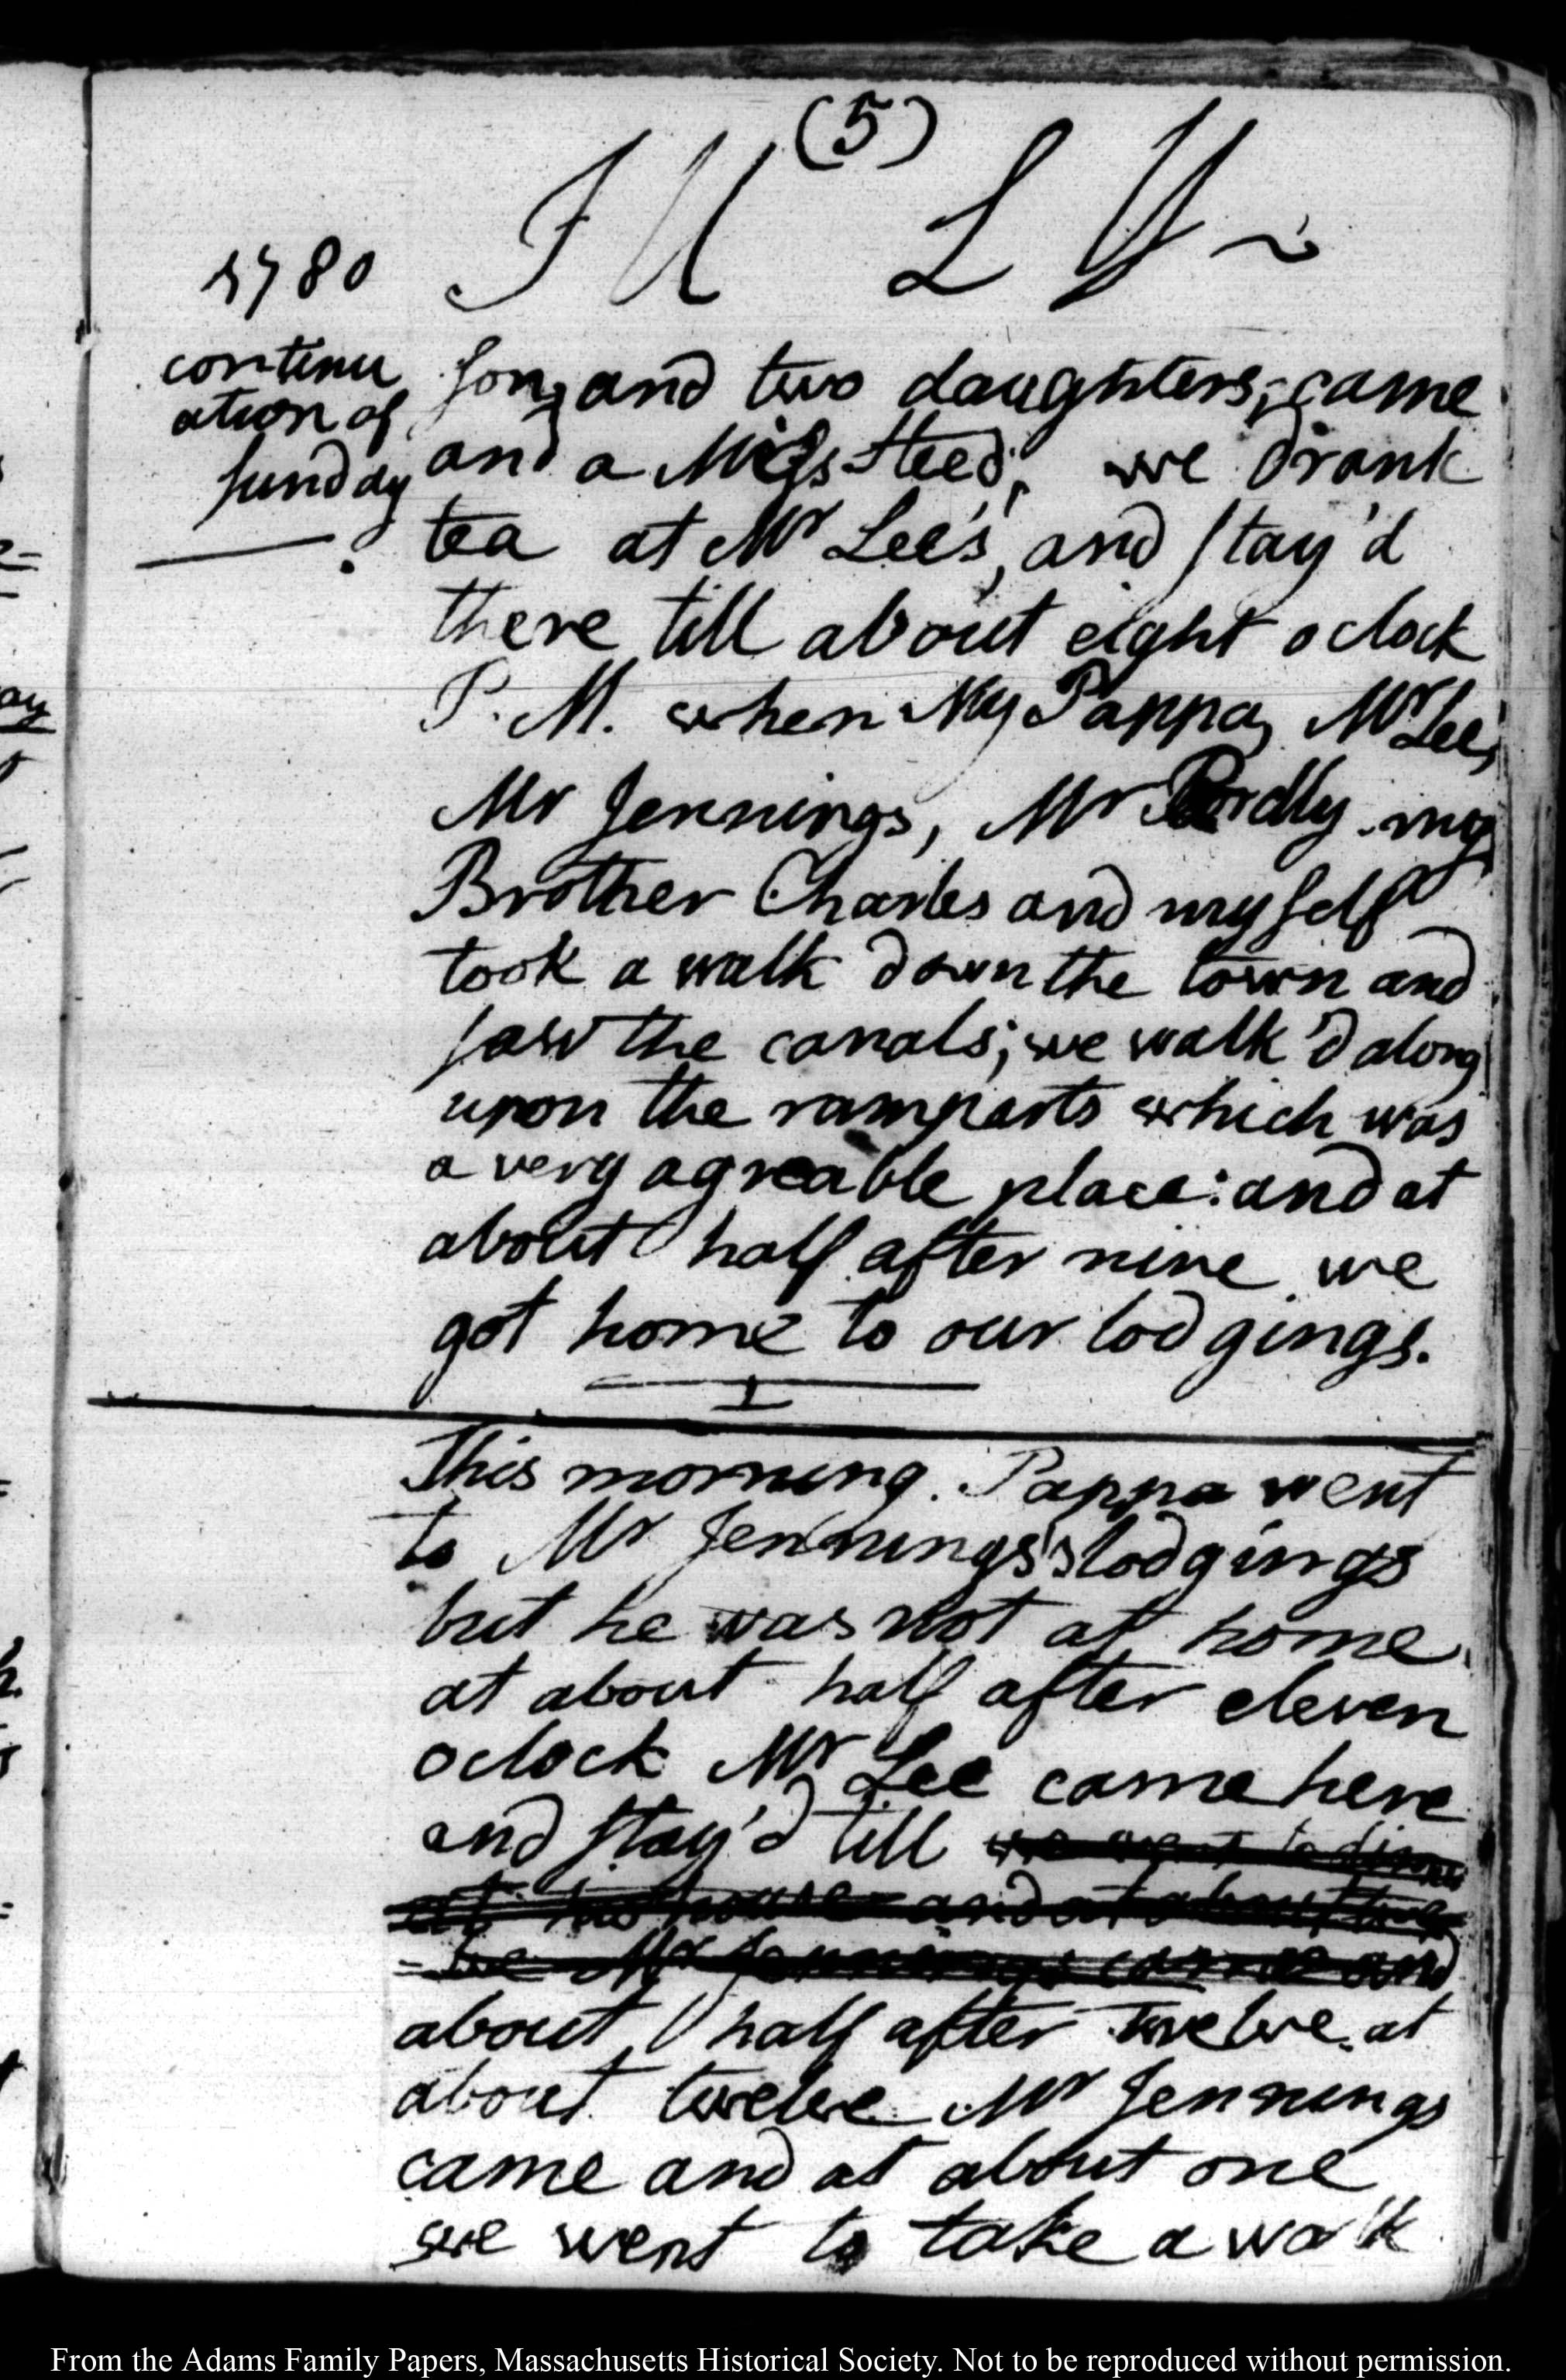 (5)
JULY
1780
continu
ation of
sunday
son, and two daughters, came
and a Miss Steed, we drank
tea at Mr Lee's, and stay'd
there till about eight oclock
P. M. when My Pappa, Mr Lee,
Mr Jennings, Mr Bordly my
Brother Charles and myself
took a walk down the town and
saw the canals; we walk'd along
upon the ramparts which was
a very agreable place: and at
about half after nine we
got home to our lodgings.
This morning. Pappa went
to Mr Jennings's lodgings
but he was not at home.
at about half after eleven
oclock Mr Lee came here
and stay'd till we went to dinner
at his house and at about twel
-ve Mr Jennings came and
about half after twelve. at
about twelve Mr Jennings
came and at about one
we went to take a walk
From the Adams Family Papers, Massachusetts Historical Society. Not to be reproduced without permission.